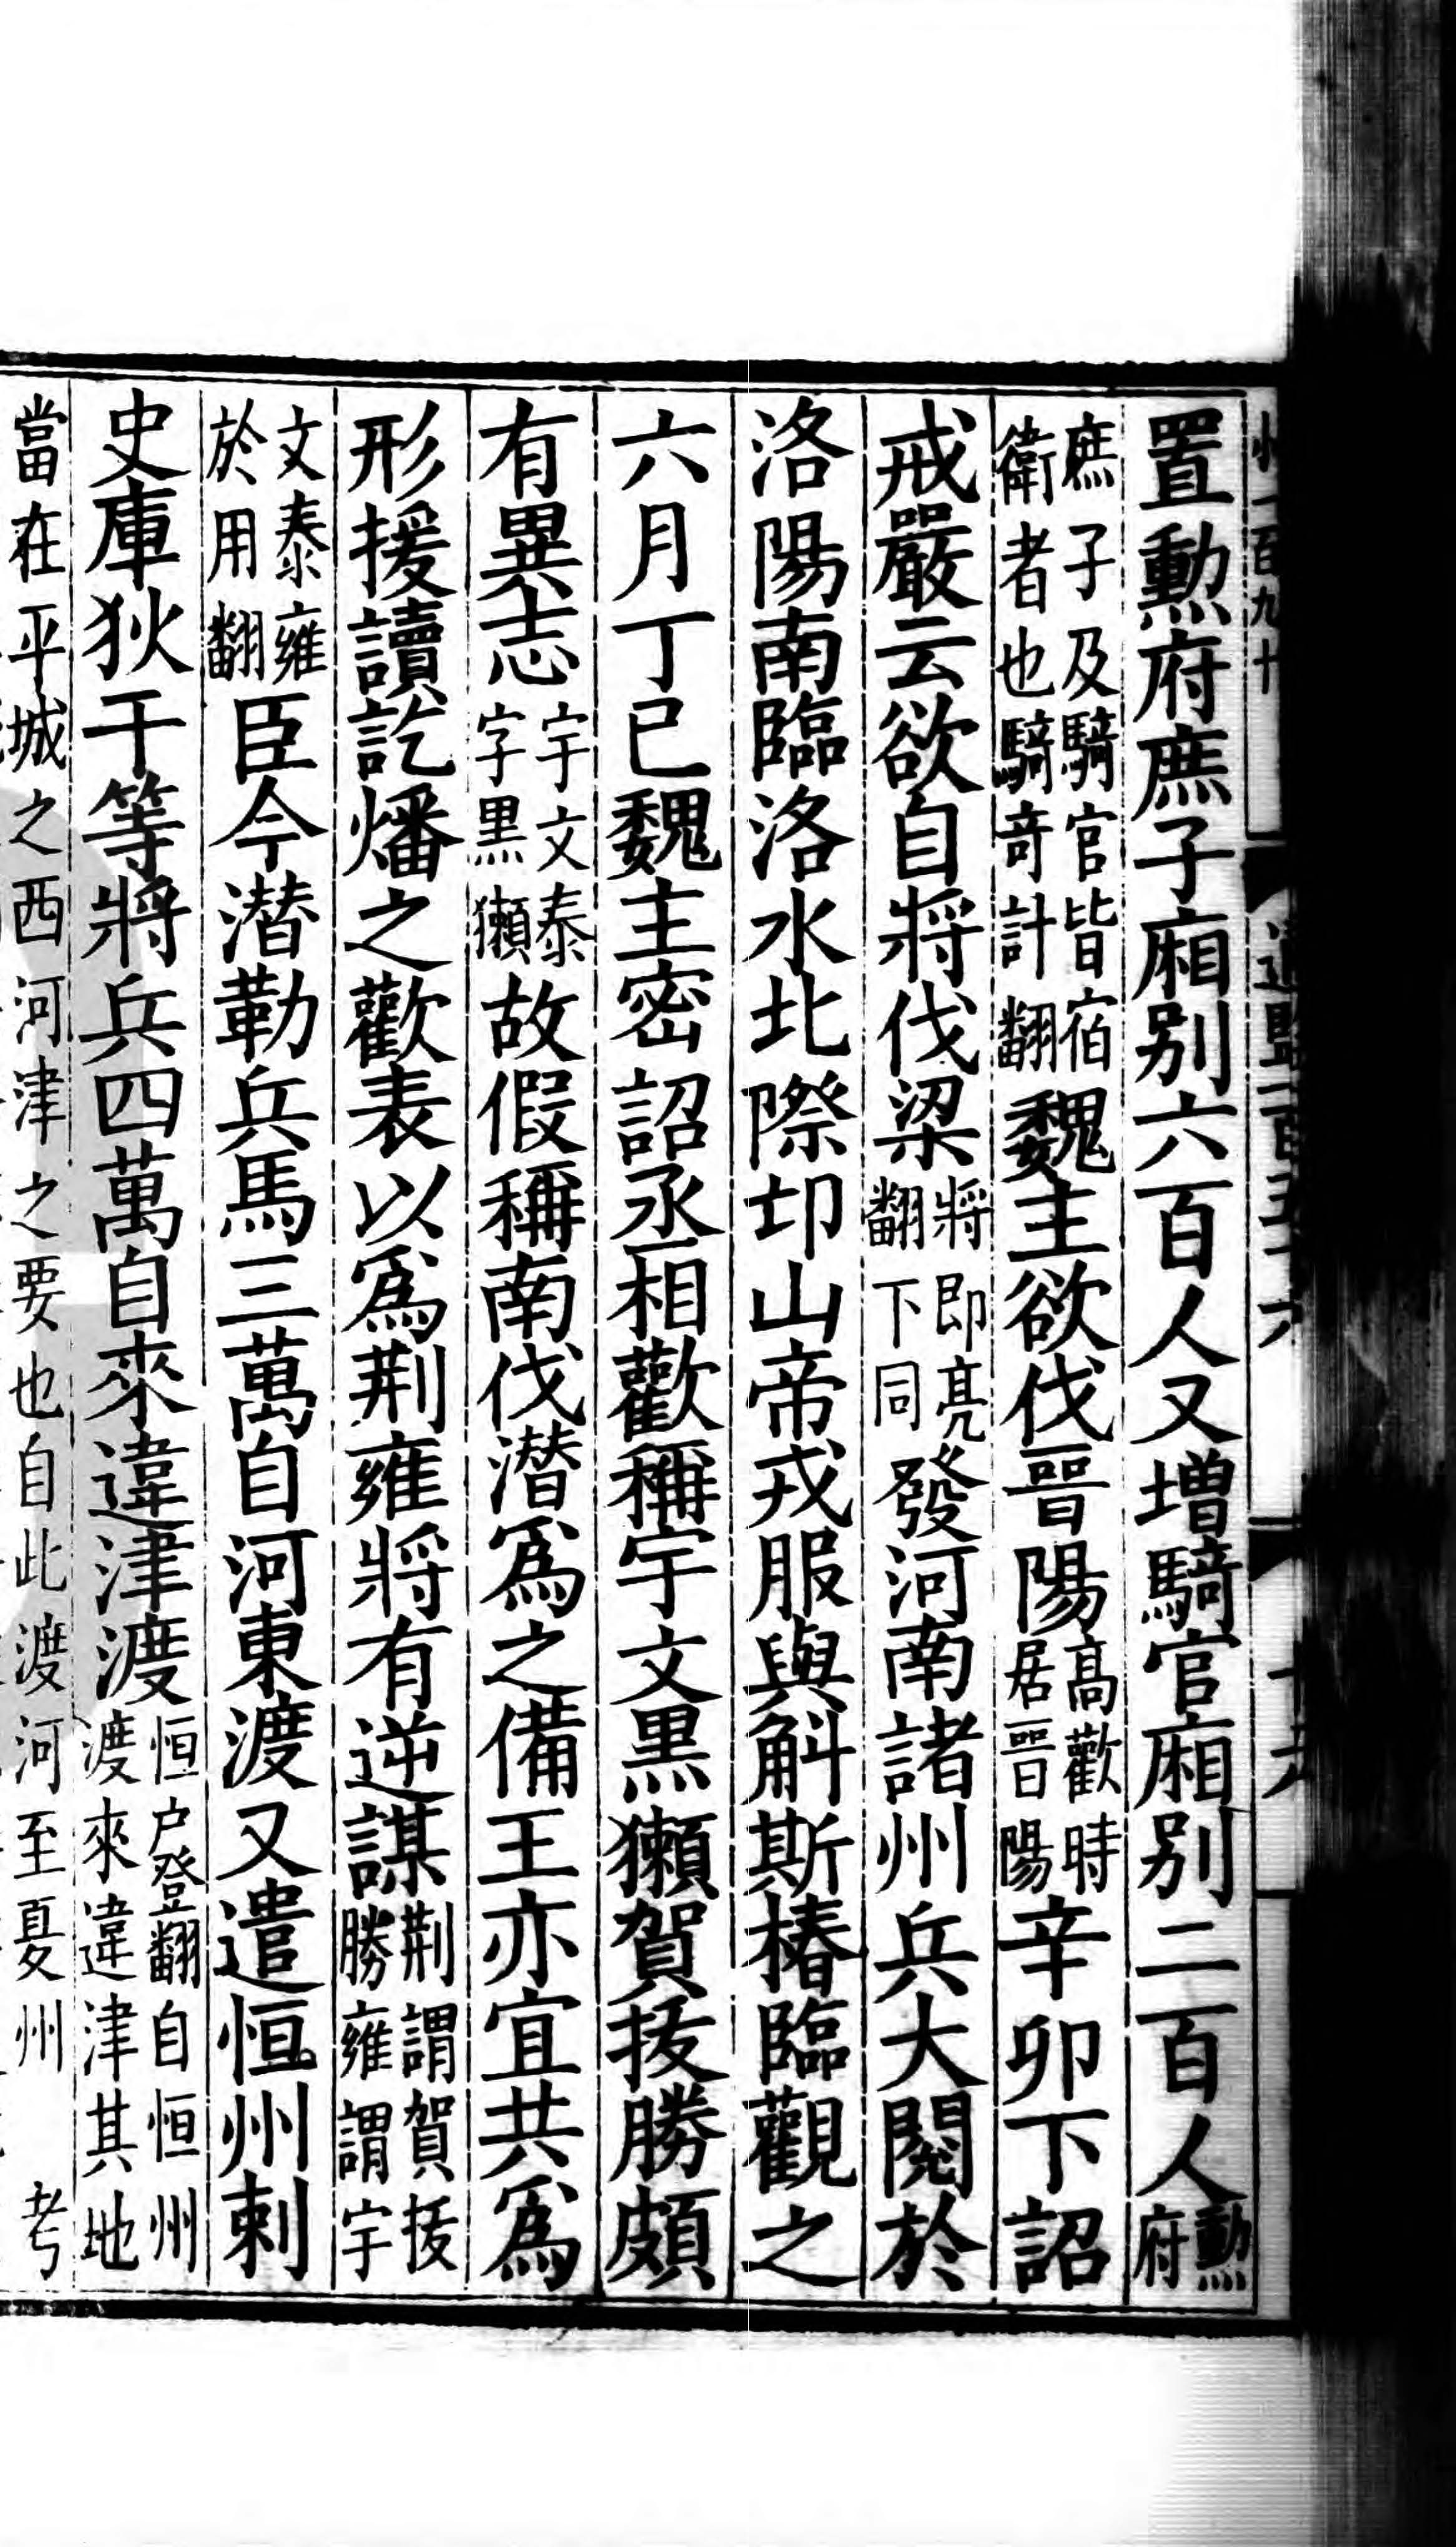 置勲府庶子廂别六百人又増騎官廂别二百人勲府
庶子及騎官皆宿衛者也騎竒計翻魏主欲伐晉陽髙歡時居晉陽辛卯下詔
戒嚴云欲自將伐梁將即亮翻下同發河南諸州兵大閱於
洛陽南臨洛水北際邙山帝戎服與斛斯椿臨觀之
六月丁巳魏主密詔丞相歡稱宇文黒獺賀拔勝頗
有異志宇文泰字黒獺故假稱南伐潜爲之備王亦宜共爲
形援讀訖燔之歡表以爲荆雍將有逆謀荆謂賀拔勝雍謂宇
文泰雍於用翻臣今潜勒兵馬三萬自河東渡又遣恒州刺
史庫狄干等將兵四萬自來違津渡恒户登翻自恒州渡來違津其地
當在平城之西河津之要也自此渡河至夏州 考